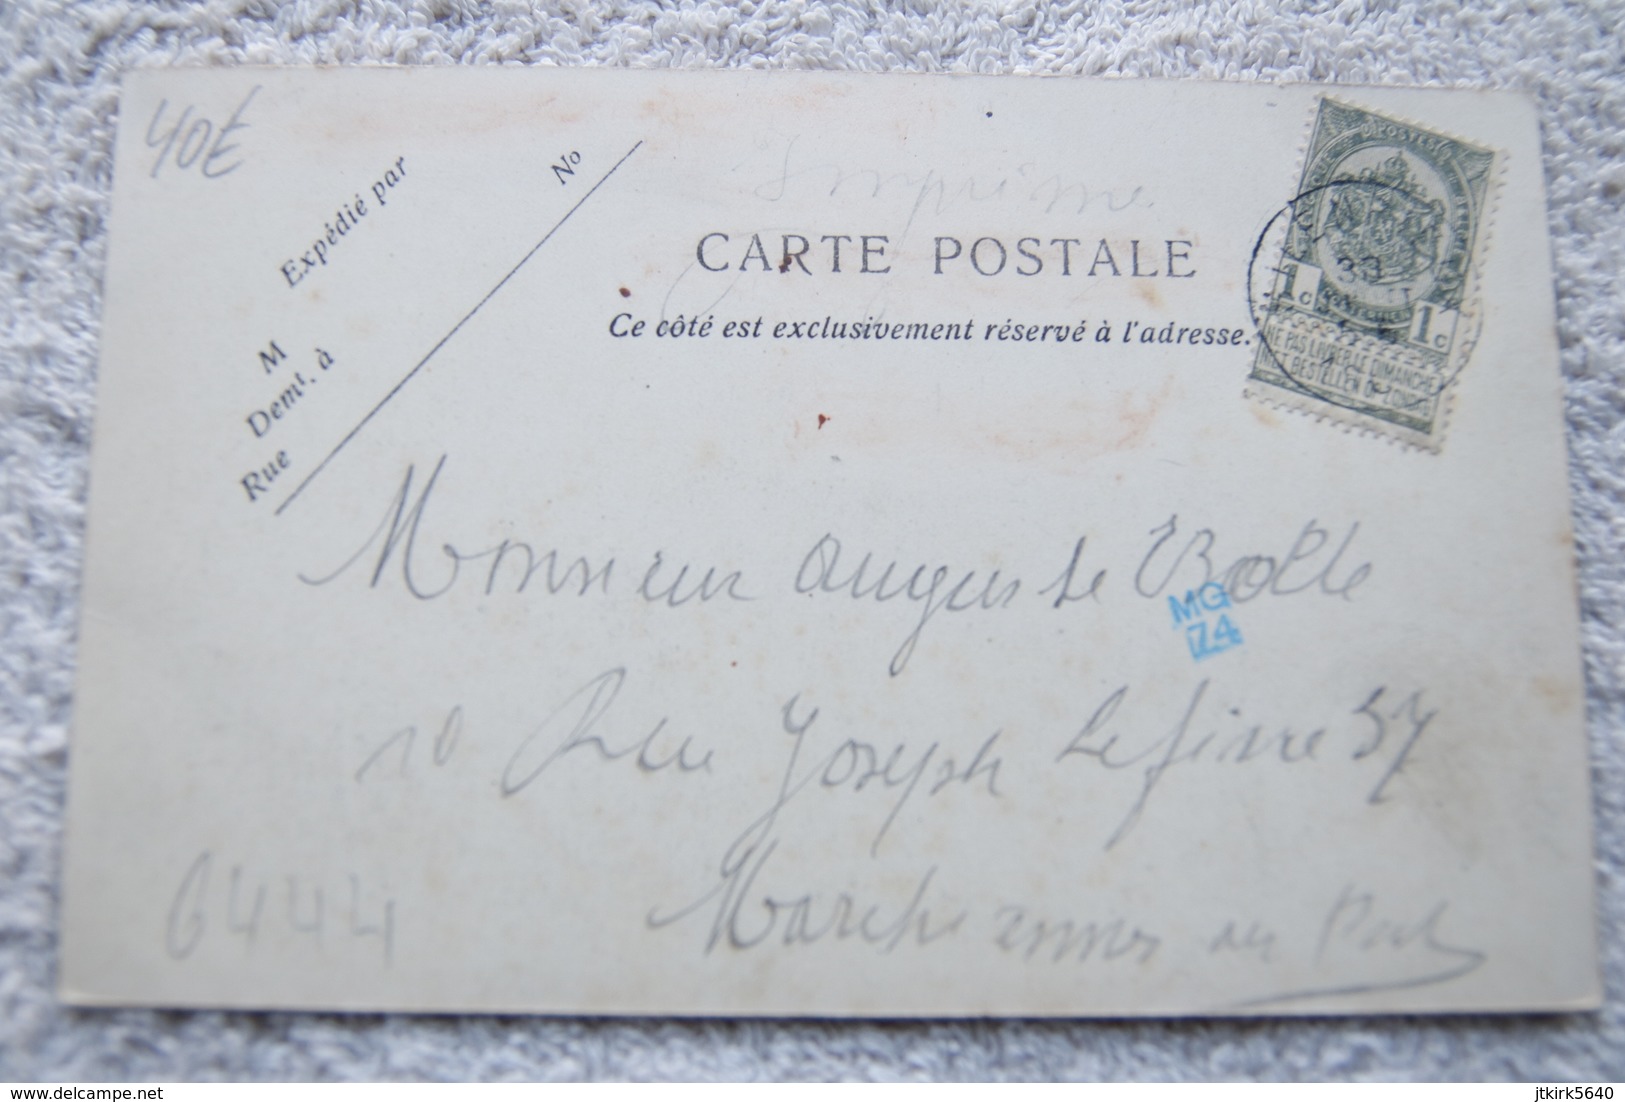 40€
Expédié par
No
M
Demt. à
Rue
Imprimé
CARTE POSTALE
Ce côté est exclusivement réservé à l'adresse.
POSTES
1c 1c
NE PAS LIVRER LE DIMANCHE
NIET BESTELLEN OP ZONDAG
Monsieur Auguste Bolle
MG
74
10 Rue Joseph Lefivre 37
Marchiennes au Pont
6444
delcampe.net
jtkirk5640